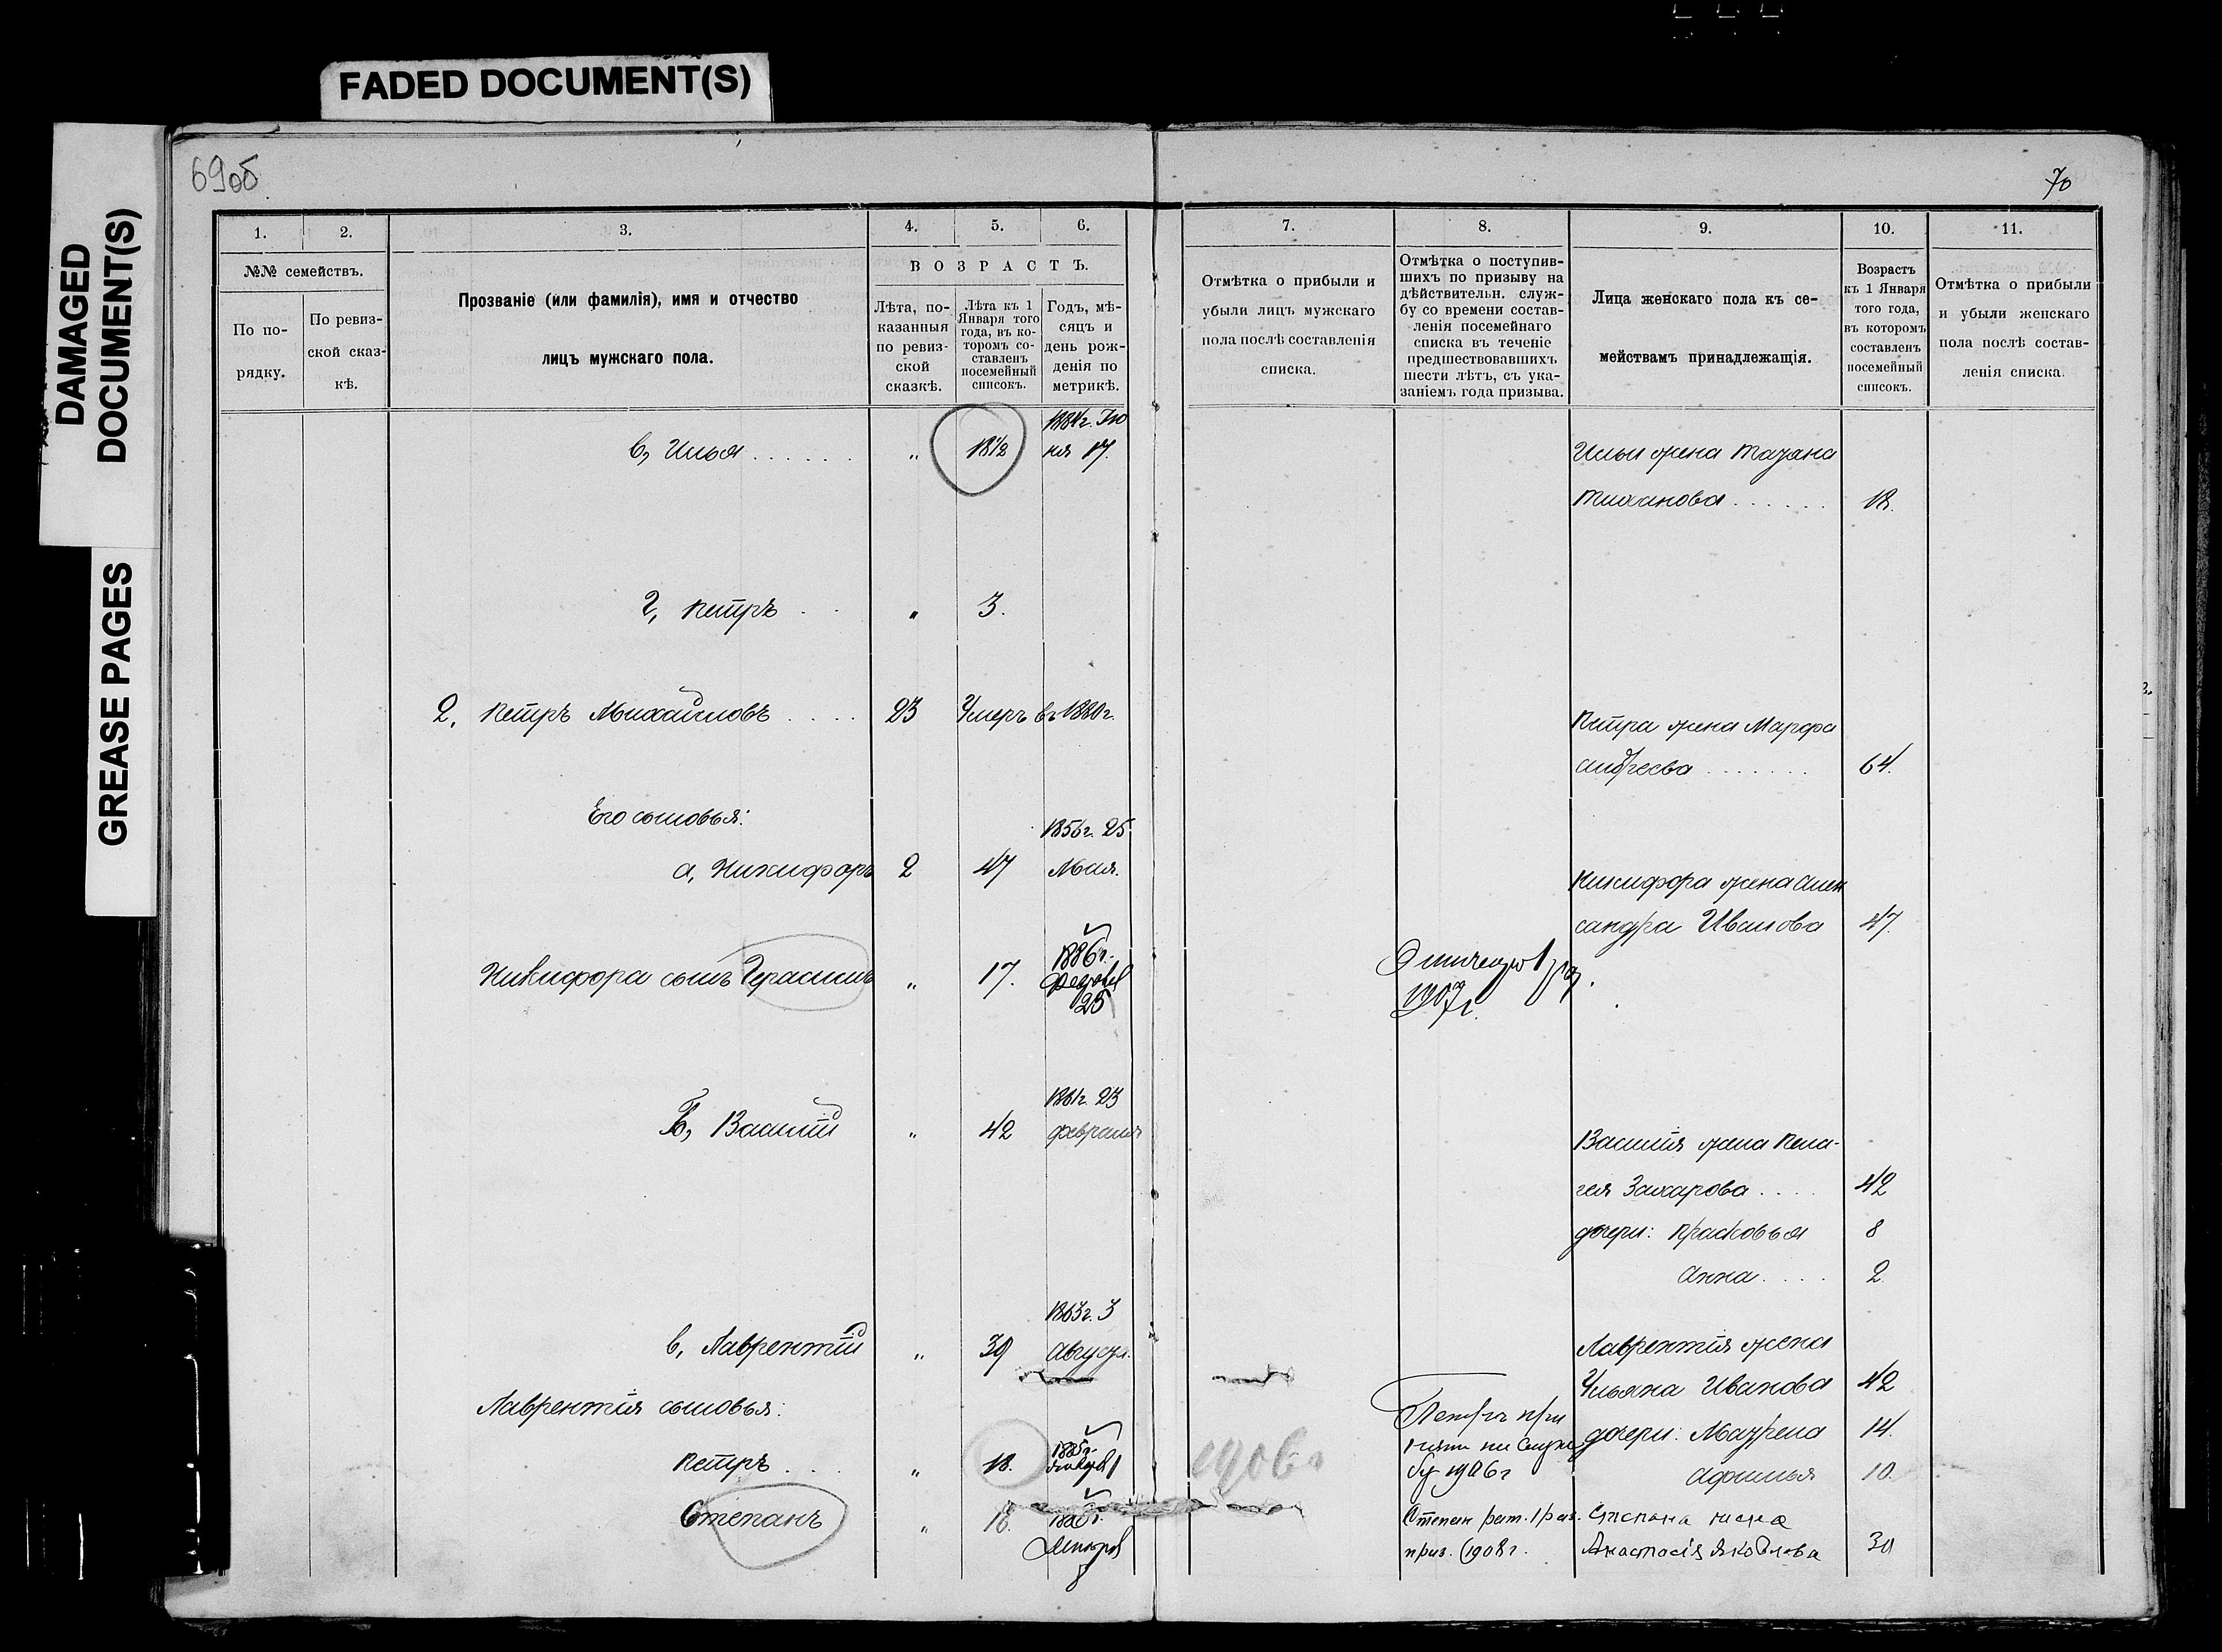 FADED DOCUMENT(S)
DAMAGED
DOCUMENT(S)
GREASE PAGES
69об
70
1.
2.
3.
4.
5.
6.
№№ семействъ.
По по-
рядку.
По ревиз-
ской сказ-
кѣ.
Прозваніе (или фамилія), имя и отчество
лицъ мужскаго пола.
ВОЗРАСТЪ.
Лѣта, по-
казанныя
по ревиз-
ской
сказкѣ.
Лѣта къ 1
Января того
года, въ ко-
торомъ со-
ставленъ
посемейный
списокъ.
Годъ, мѣ-
сяцъ и
день рож-
денія по
метрикѣ.
7.
8.
9.
10.
11.
Отмѣтка о прибыли и
убыли лицъ мужскаго
пола послѣ составленія
списка.
Отмѣтка о поступив-
шихъ по призыву на
дѣйствительн. служ-
бу со времени состав-
ленія посемейнаго
списка въ теченіе
предшествовавшихъ
шести лѣтъ, съ ука-
заніемъ года призыва.
Лица женскаго пола къ се-
мействамъ принадлежащія.
Возрастъ
къ 1 Января
того года,
въ которомъ
составленъ
посемейный
списокъ.
Отмѣтка о прибыли
и убыли женскаго
пола послѣ состав-
ленія списка.
1884г. Iю
в, Илья . . . . . . " 18½ ня 17.
Ильи жена
18.
г, Петръ . . " 3.
2, Петръ Михайловъ . . . . 23 Умеръ въ 1880г.
Петра жена Марфа
Андреева . . . . . . . 64.
Его сыновья:
1856г. 25
а, Никифоръ 2 47 Мая.
Никифора жена Алек
сандра Иванова 47.
1886г.
Никифора сынъ Герасимъ " 17.
25
1907г.
1861г. 23
б, Василій " 42 февраля
Василія жена Пела-
гея Захарова . . . . 42
дочери: Прасковья 8
Анна . . . . 2
1863г. 3
в, Лаврентій " 39 Августа.
Лаврентія жена
Ульяна Иванова 42
Лаврентія сыновья:
дочери: 14.
Афимья 10.
1885г.
Петръ . . . " 18. Января 1
1906г
Петръ при
нятъ на служ
бу 1906г
Степанъ " 16.
Степан рат. 1 раз.
приз. 1908г.
Степана жена
Анастасія Яковлева 30